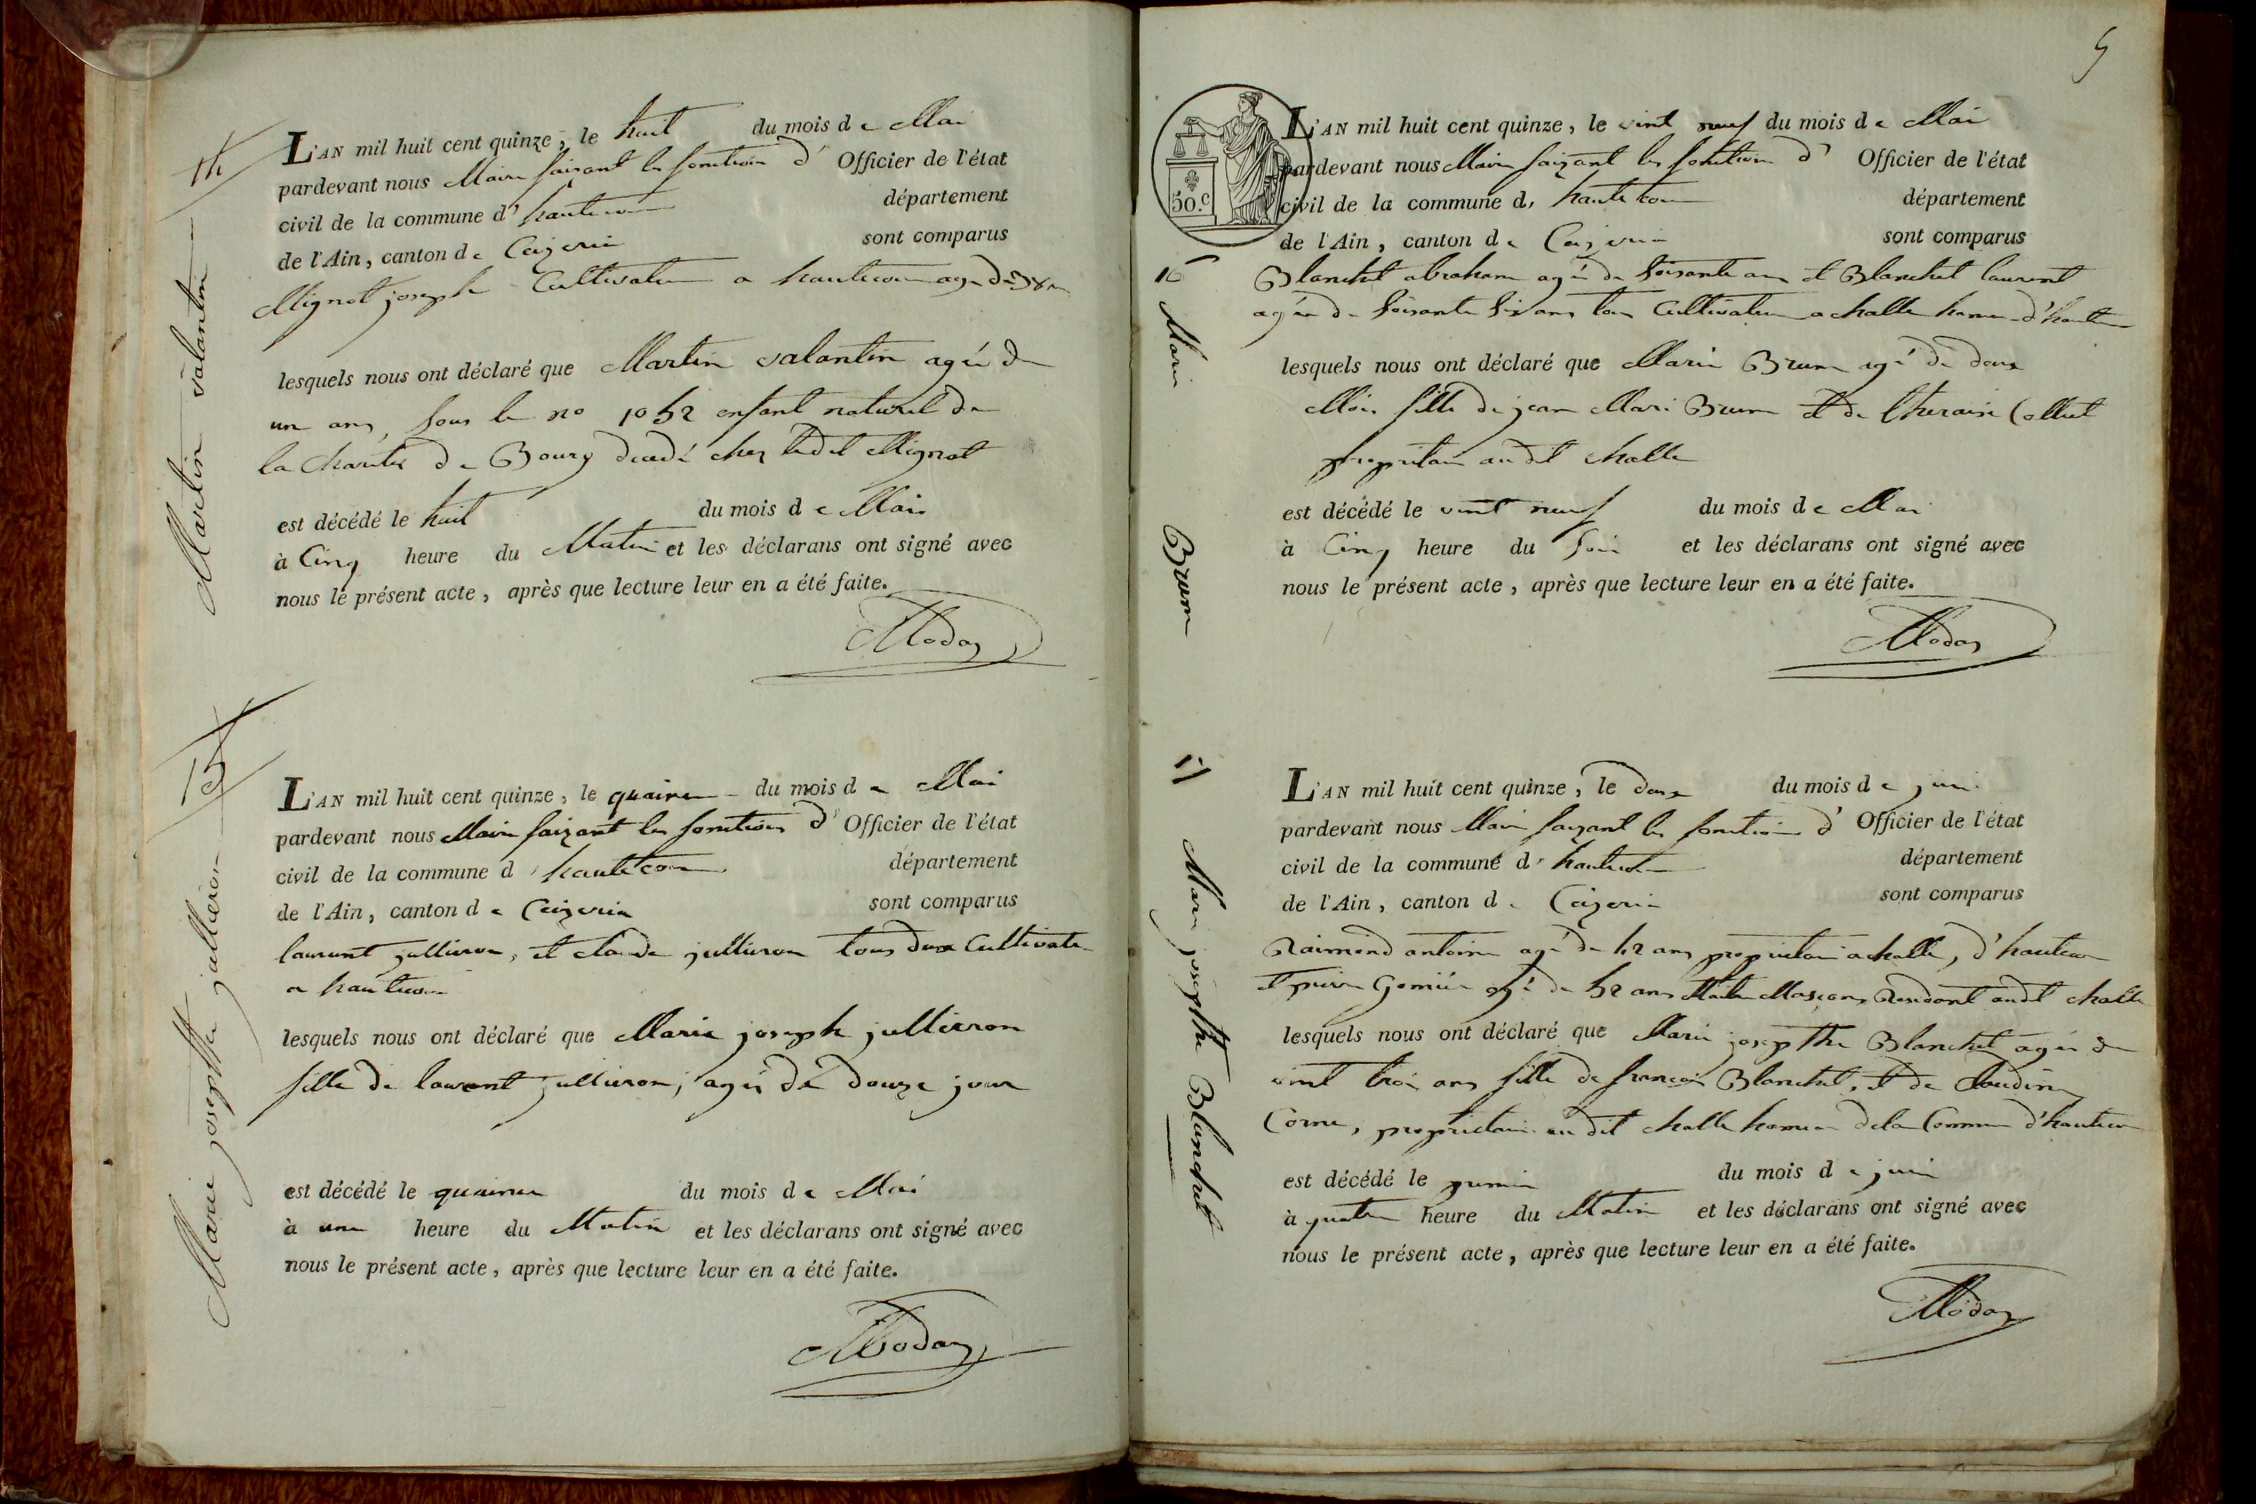 14
Martin valantin
L'AN mil huit cent quinze, le huit du mois de Mai
pardevant nous Maire faizant les fonction d' Officier de l'état
civil de la commune d' hautecour département
de l'Ain, canton de Ceizeria sont comparus
Mignot joseph Cultivateur a hautecour agé de 38
lesquels nous ont déclaré que Martin valantin agée de
un ans, sous le no 1052 enfant naturel de
la charité de Bourg deedé chez ledit Mignot
est décédé le huit du mois de Mai
à Cinq heure du Matin et les déclarans ont signé avec
nous le présent acte, après que lecture leur en a été faite.
15
Marie josephte jullieron
L'AN mil huit cent quinze, le du mois de Mai
pardevant nous Maire faizant les fonctions d' Officier de l'état
civil de la commune d' hautecour département
de l'Ain, canton de Ceizeria sont comparus
laurent jullieron, et claude jullieron tous deux Cultivateur
a hautecour
lesquels nous ont déclaré que Marie joseph jullierron
fille de laurent jullieron, agée de douze jour
est décédé le du mois de Mai
à une heure du Matin et les déclarans ont signé avec
nous le présent acte, après que lecture leur en a été faite.
5
50.c
16
Marie Brunn
L'AN mil huit cent quinze, le vint neuf du mois de Mai
pardevant nous Maire faizant les fonction d' Officier de l'état
civil de la commune d' hautecour département
de l'Ain, canton de Ceizeria sont comparus
Blanchet abraham agée de soisante ans et Blanchet laurent
agée de soisante six ans tous Cultivateur a challe hameau d'hautecour
lesquels nous ont déclaré que Marie Brunn agé de deux
Mois fille de jean Marie Brunn et de theraise Collet
propritaire audit challe
est décédé le vint neuf du mois de Mai
à Cinq heure du soir et les déclarans ont signé avec
nous le présent acte, après que lecture leur en a été faite.
17
Marie josephte Blanchet
L'AN mil huit cent quinze, le deux du mois de juin
pardevant nous Maire faizant les fonction d' Officier de l'état
civil de la commune d' hautecour département
de l'Ain, canton de Ceizeria sont comparus
Raimond antoine agé de 42 ans propriétaire a challe, d'hautecour
et pierre agé de 52 ans Maitre Maçons audit challe
lesquels nous ont déclaré que Marie josepthe Blanchet agée de
vint trois ans fille de françois Blanchet, et de Claudine
Corne, propriétaire au dit challe hameau de la Commune d'hautecour
est décédé le premier du mois de juin
à quatre heure du Matin et les déclarans ont signé avec
nous le présent acte, après que lecture leur en a été faite.